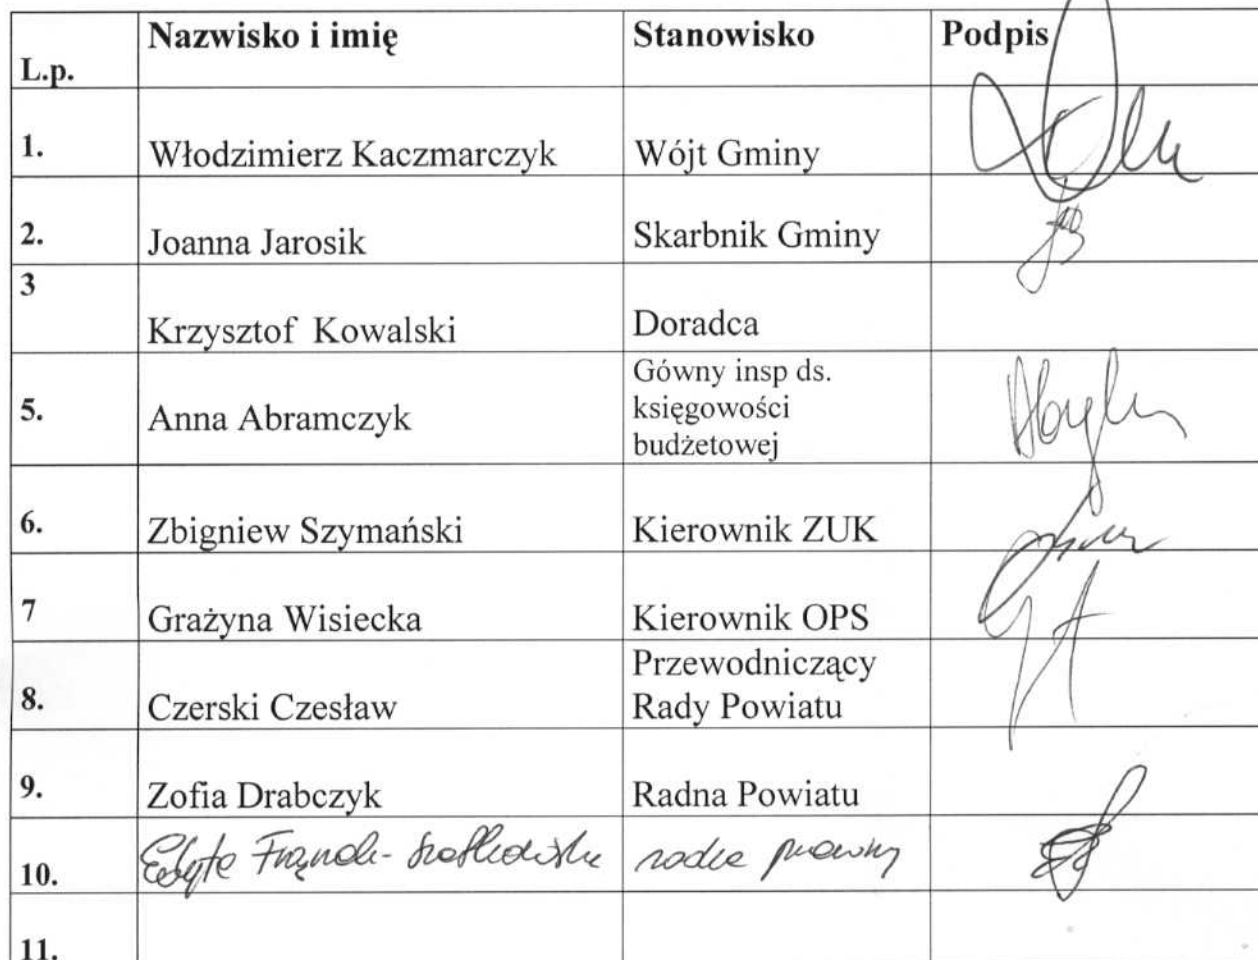 L.p. Nazwisko i imię Stanowisko Podpis
1. Włodzimierz Kaczmarczyk Wójt Gminy
2. Joanna Jarosik Skarbnik Gminy
3 Krzysztof Kowalski Doradca
5. Anna Abramczyk Gówny insp ds.
księgowości
budżetowej
6. Zbigniew Szymański Kierownik ZUK
7 Grażyna Wisiecka Kierownik OPS
8. Czerski Czesław Przewodniczący
Rady Powiatu
9. Zofia Drabczyk Radna Powiatu
10. Edyta radca prawny
11.